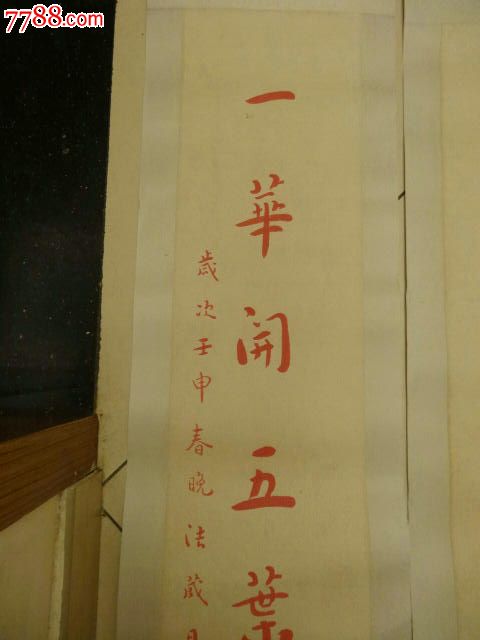 7788.com
一華開五葉
歲次壬申春晚法藏